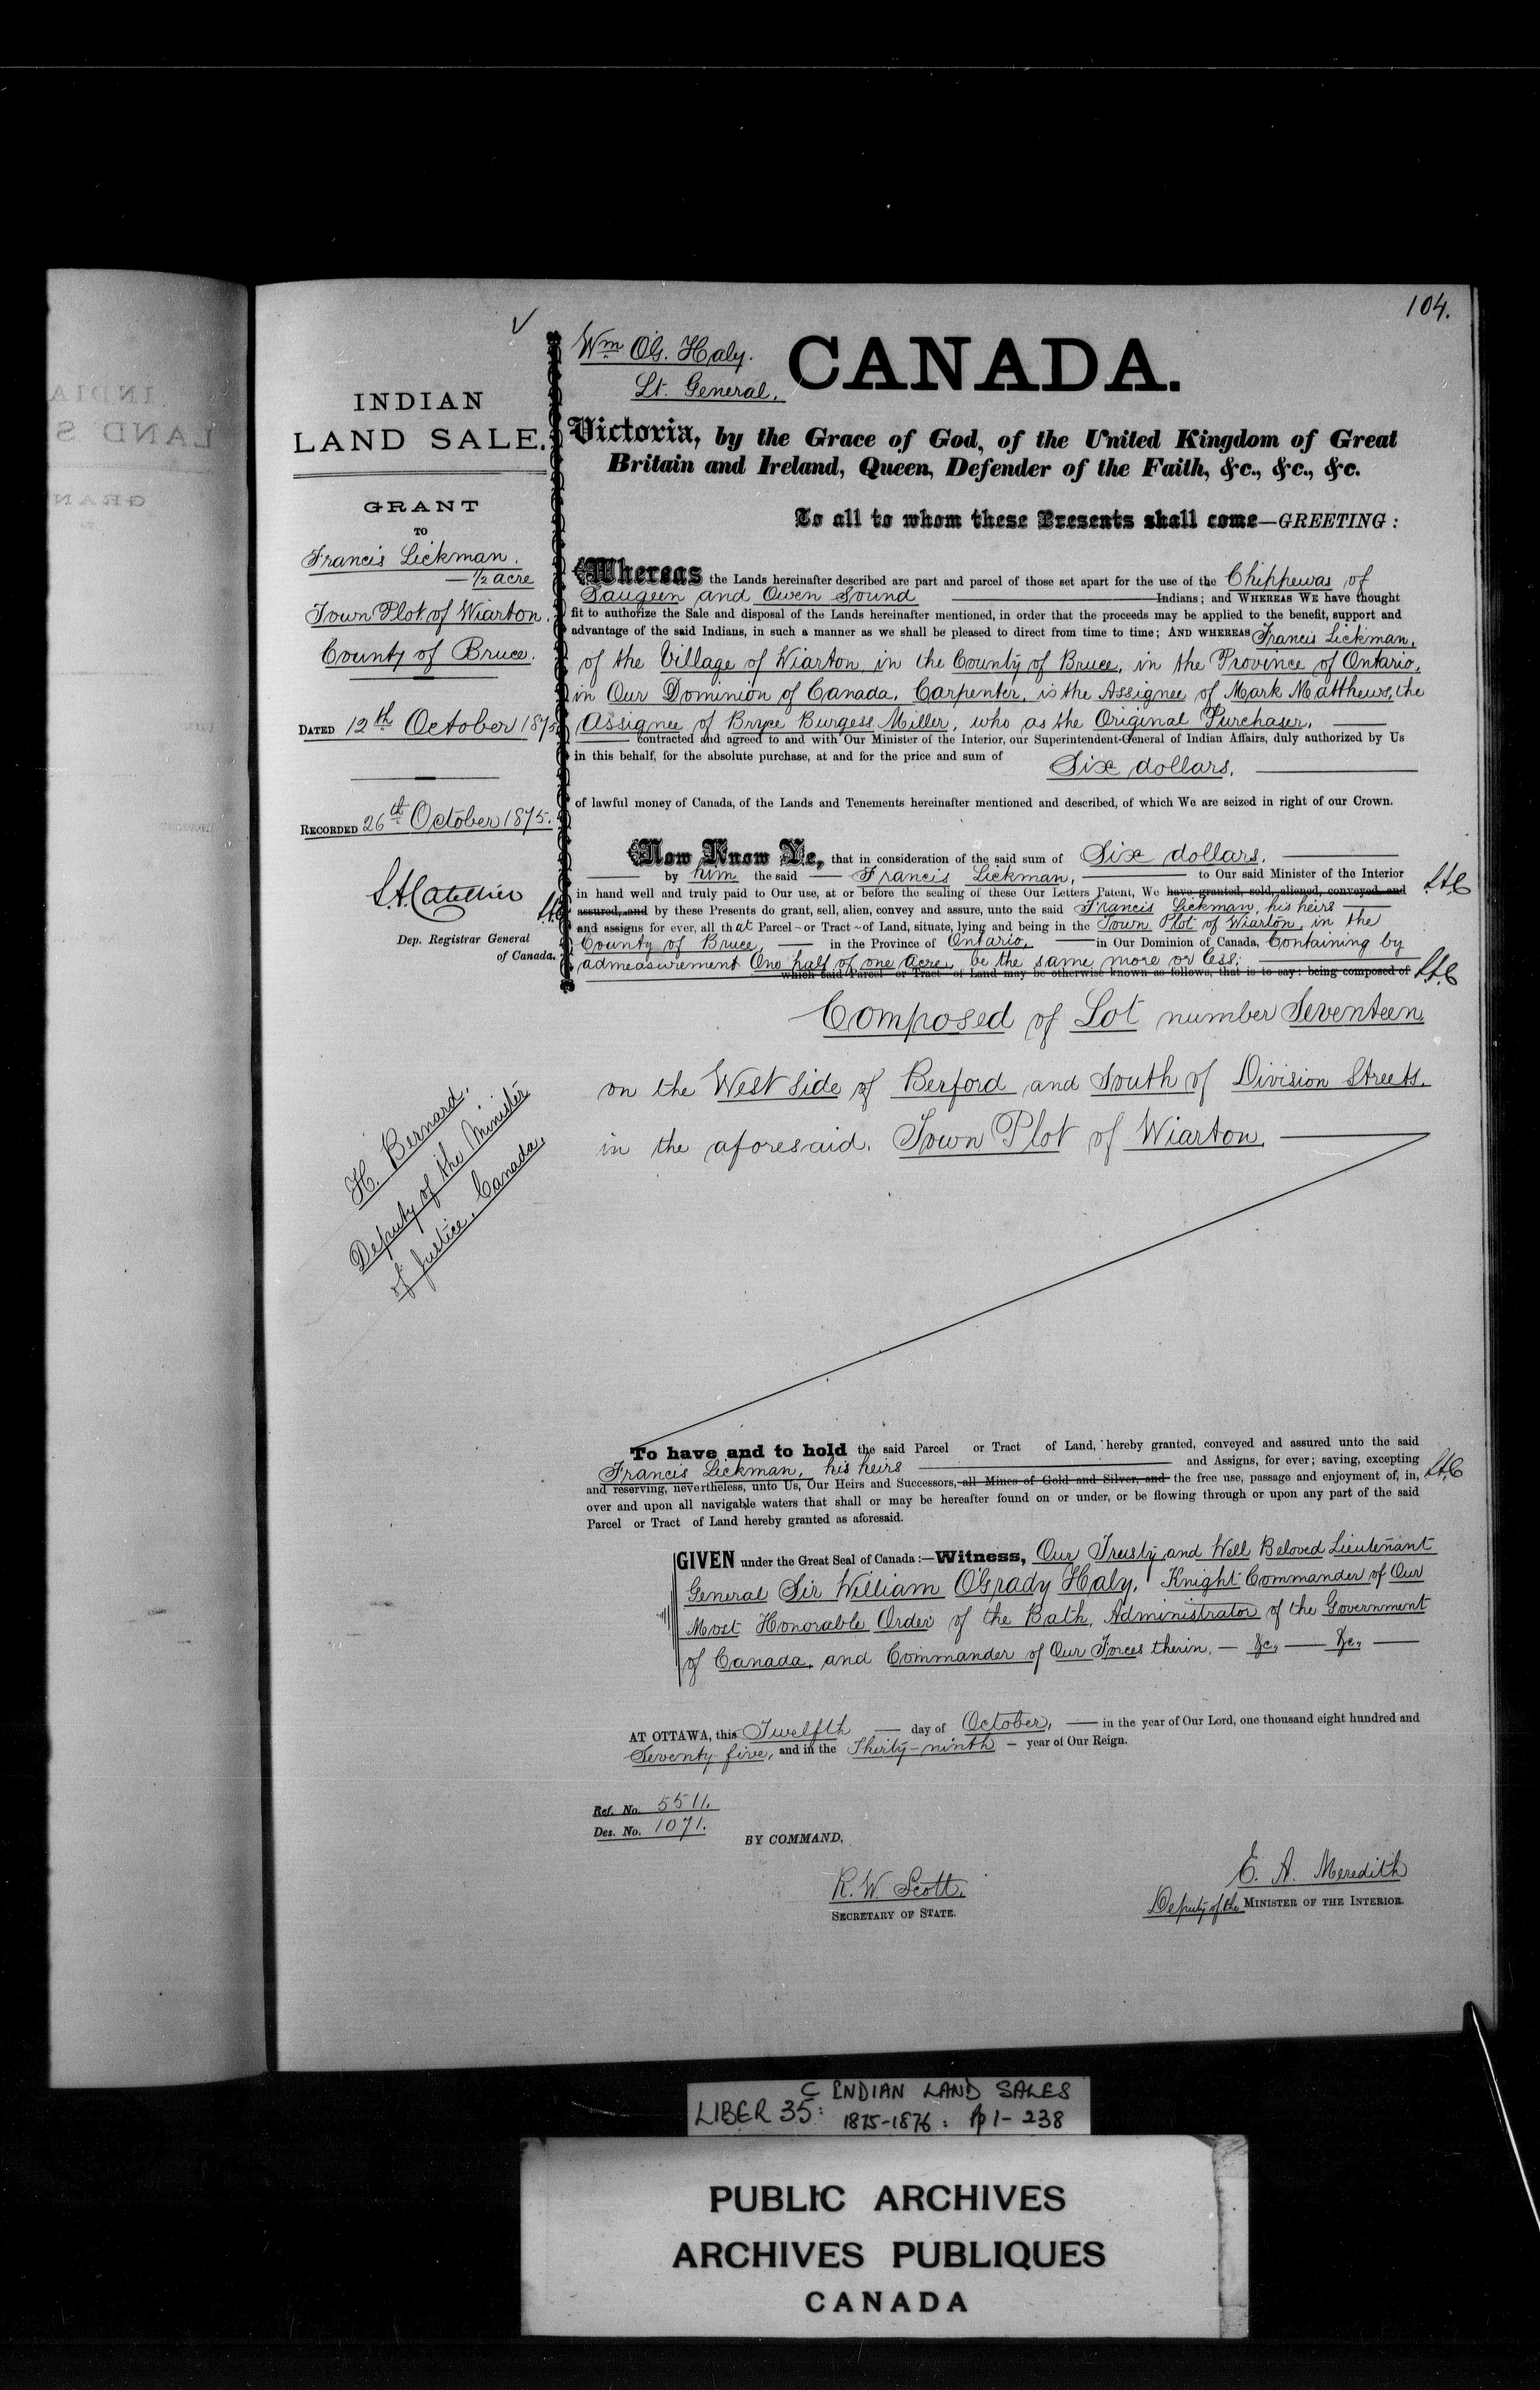 104.
Wm O'G. Haly.
Lt. General.
CANADA.
INDIAN
LAND SALE.
GRANT
TO
Francis Lickman.
— 1/2 acre
Town Plot of Wiarton.
County of Bruce.
DATED 12th October 1875
RECORDED 26th October 1875.
Dep. Registrar General
of Canada.
H. Bernard.
Deputy of the Minister
of Justice, Canada.
Victoria, by the Grace of God, of the United Kingdom of Great
Britain and Ireland, Queen, Defender of the Faith, &c., &c., &c.
To all to whom these Presents shall come—GREETING:
Whereas the Lands hereinafter described are part and parcel of those set apart for the use of the Chippewas of
Saugeen and Owen Sound Indians; and WHEREAS WE have thought
fit to authorize the Sale and disposal of the Lands hereinafter mentioned, in order that the proceeds may be applied to the benefit, support and
advantage of the said Indians, in such a manner as we shall be pleased to direct from time to time; AND WHEREAS Francis Lickman,
of the Village of Wiarton, in the County of Bruce, in the Province of Ontario,
in Our Dominion of Canada, Carpenter, is the Assignee of Mark Matthews, the
Assignee of Bryce Burgess Miller, who as the Original Purchaser,
contracted and agreed to and with Our Minister of the Interior, our Superintendent-General of Indian Affairs, duly authorized by Us
in this behalf, for the absolute purchase, at and for the price and sum of Six dollars,
of lawful money of Canada, of the Lands and Tenements hereinafter mentioned and described, of which We are seized in right of our Crown.
Now Know Ye, that in consideration of the said sum of Six dollars.
by him the said — Francis Lickman, to Our said Minister of the Interior
in hand well and truly paid to Our use, at or before the sealing of these Our Letters Patent, We have granted, sold, aliened, conveyed and
assured, and by these Presents do grant, sell, alien, convey and assure, unto the said Francis Lickman, his heirs
and assigns for ever, all that Parcel or Tract of Land, situate, lying and being in the Town Plot of Wiarton, in the
County of Bruce, in the Province of Ontario, in Our Dominion of Canada, Containing by
admeasurement One half of one Acre, be the same more or less;
which said Parcel or Tract of Land may be otherwise known as follows, that is to say: being composed of
Composed of Lot number Seventeen
on the West side of Berford and South of Division Streets.
in the aforesaid. Town Plot of Wiarton.
To have and to hold the said Parcel or Tract of Land, hereby granted, conveyed and assured unto the said
Francis Lickman, his heirs and Assigns, for ever; saving, excepting
and reserving, nevertheless, unto Us, Our Heirs and Successors, all Mines of Gold and Silver, and the free use, passage and enjoyment of, in,
over and upon all navigable waters that shall or may be hereafter found on or under, or be flowing through or upon any part of the said
Parcel or Tract of Land hereby granted as aforesaid.
GIVEN under the Great Seal of Canada:—Witness, Our Trusty and Well Beloved Lieutenant
General Sir William O'Grady Haly, Knight Commander of Our
Most Honorable Order of the Bath, Administrator of the Government
of Canada, and Commander of Our Forces therin. — &c, — &c, —
AT OTTAWA, this Twelfth — day of October, — in the year of Our Lord, one thousand eight hundred and
Seventy five, and in the Thirty-ninth — year of Our Reign.
Ref. No. 5511.
Des. No. 1071.
BY COMMAND,
R. W. Scott.
SECRETARY OF STATE.
E. A. Meredith
Deputy of the MINISTER OF THE INTERIOR.
C INDIAN LAND SALES
LIBER 35: 1875-1876: Pp 1-238
PUBLIC ARCHIVES
ARCHIVES PUBLIQUES
CANADA